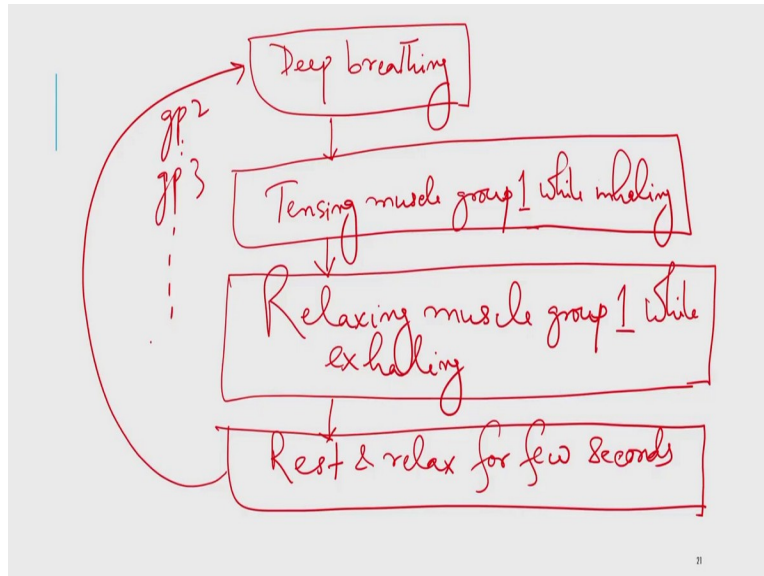 Deep breathing
gp2
gp3
Tensing muscle group 1 while inhaling
Relaxing muscle group 1 while
exhaling
Rest & relax for few seconds
21